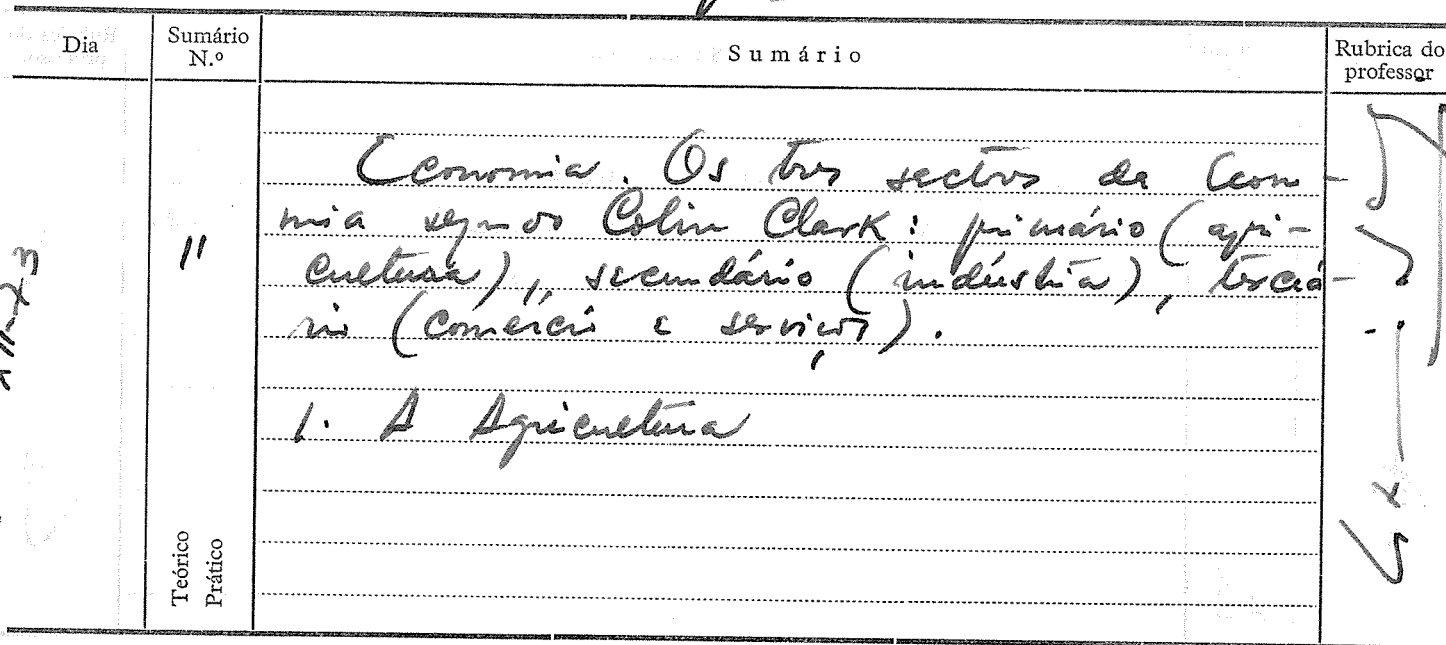 Dia
Sumário
N.º
Sumário
Rubrica do
professor
11
Economia. Os tres sectores da Econo-
mia segundo Colin Clark: primário (agri-
cultura), secundário (indústria), terciá-
rio (comércio e serviços).
1. A Agricultura
Teórico
Prático